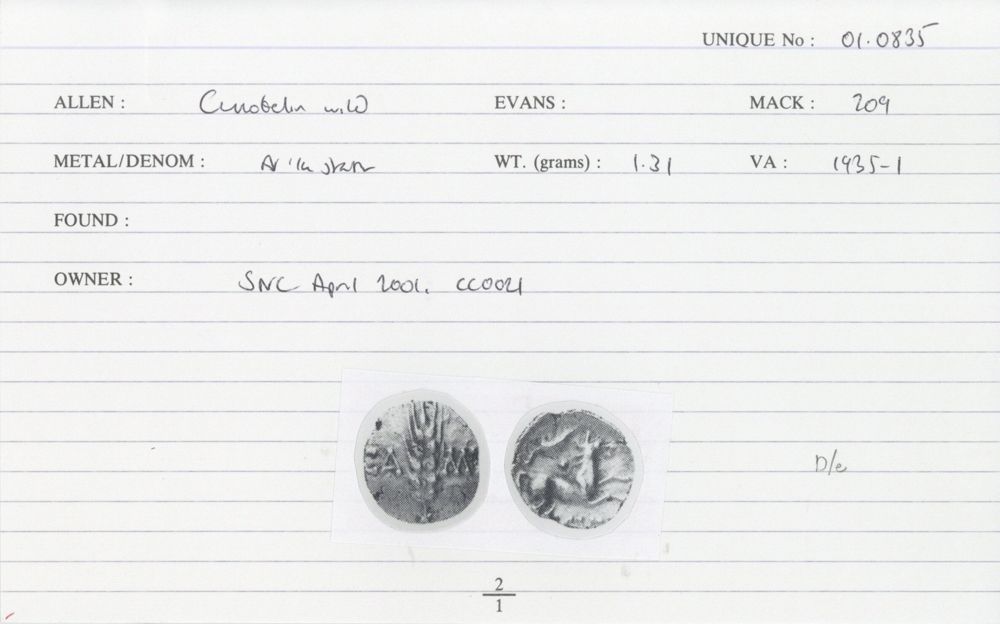 UNIQUE No : 01.0835
ALLEN : Cunobelin wild EVANS : MACK : 209
METAL/DENOM : AV 1/4 stater WT. (grams) : 1.31 VA : 1935-1
FOUND :
OWNER : SNC April 2001. CC0021
CA MV
D/e
2
1